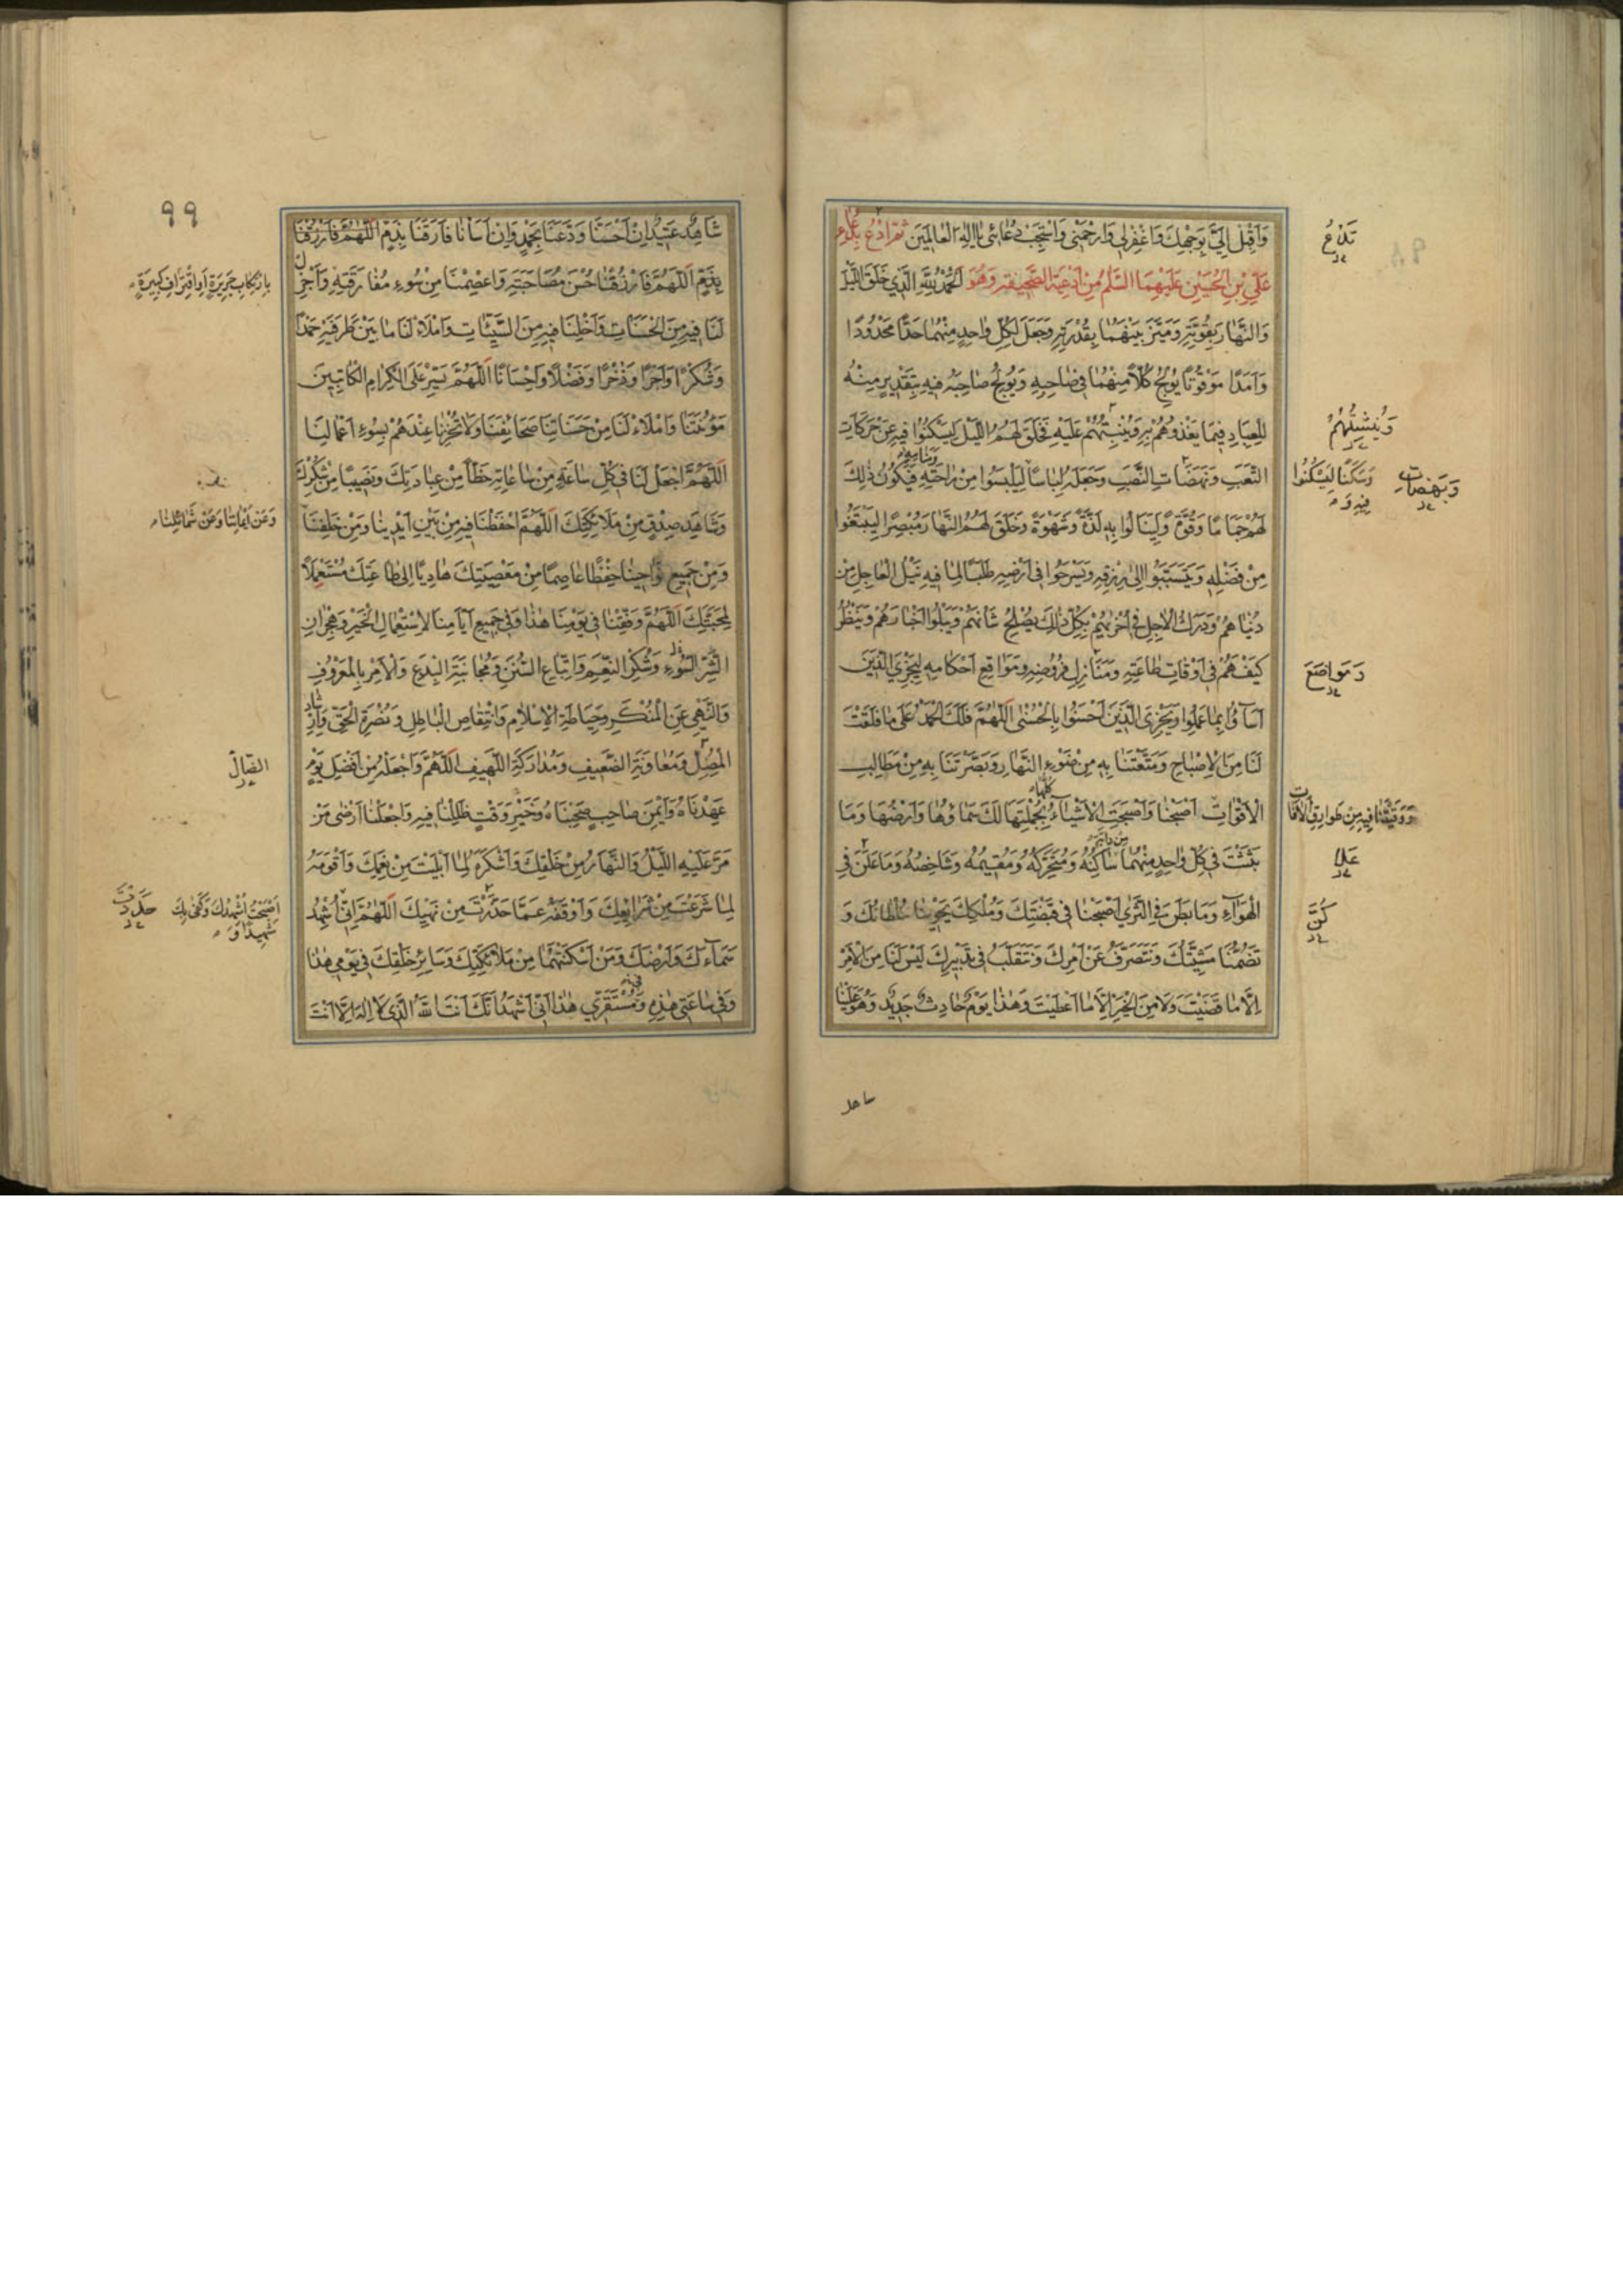 وَاَقْبِلْ اِلَيَّ بِوَجْهِكَ وَاغْفِرْلِي وَارْحَمْنِي وَاسْتَجِبْ دُعَائِي يَا اِلٰهَ الْعَالَمِينَ ثُمَّ ادْعُ بِدُعَاءِ
عَلِيِّ بْنِ الْحُسَيْنِ عَلَيْهِمَا السَّلٰمُ مِنْ اَدْعِيَةِ الصَّحِيفَةِ وَهُوَ اَلْحَمْدُ لِلّٰهِ الَّذِي خَلَقَ اللَّيْلَ
وَالنَّهَارَ بِقُوَّتِهِ وَمَيَّزَ بَيْنَهُمَا بِقُدْرَتِهِ وَجَعَلَ لِكُلِّ وٰاحِدٍ مِنْهُمَا حَدًّا مَحْدُودًا
وَاَمَدًا مَوْقُوتًا يُولِجُ كُلًّا مِنْهُمَا فِي صَاحِبِهِ وَيُولِجُ صَاحِبَهُ فِيهِ بِتَقْدِيرٍ مِنْهُ
لِلْعِبَادِ فِيمَا يَغْذُوهُمْ بِهِ وَيُنْبِتُهُمْ عَلَيْهِ فَخَلَقَ لَهُمُ اللَّيْلَ لِيَسْكُنُوا فِيهِ عَنْ حَرَكَاتِ
التَّعَبِ وَنَهَضَاتِ النَّصَبِ وَجَعَلَهُ لِبَاسًا لِيَلْبَسُوا مِنْ رَاحَتِهِ وَمَنَامِهِ فَيَكُونُ ذٰلِكَ
لَهُمْ جَمَامًا وَقُوَّةً وَلِيَنَالُوا بِهِ لَذَّةً وَشَهْوَةً وَخَلَقَ لَهُمُ النَّهَارَ مُبْصِرًا لِيَبْتَغُوا
مِنْ فَضْلِهِ وَيَتَسَبَّبُوا اِلٰى رِزْقِهِ وَيَسْرَحُوا فِي اَرْضِهِ طَلَبًا لِمَا فِيهِ نَيْلُ الْعَاجِلِ مِنْ
دُنْيَاهُمْ وَدَرَكُ الْآجِلِ فِي اُخْرٰيهُمْ بِكُلِّ ذٰلِكَ يُصْلِحُ شَاْنَهُمْ وَيَبْلُو اَخْبَارَهُمْ وَيَنْظُرُ
كَيْفَ هُمْ فِي اَوْقَاتِ طَاعَتِهِ وَمَنَازِلِ فُرُوضِهِ وَمَوَاقِعِ اَحْكَامِهِ لِيَجْزِيَ الَّذِينَ
اَسَآؤُا بِمَا عَمِلُوا وَيَجْزِيَ الَّذِينَ اَحْسَنُوا بِالْحُسْنٰى اَللّٰهُمَّ فَلَكَ الْحَمْدُ عَلٰى مَا فَلَقْتَ
لَنَا مِنَ الْاِصْبَاحِ وَمَتَّعْتَنَا بِهِ مِنْ ضَوْءِ النَّهَارِ وَبَصَّرْتَنَا بِهِ مِنْ مَطَالِبِ
الْاَقْوَاتِ اَصْبَحْنَا وَاَصْبَحَتِ الْاَشْيَآءُ كُلُّهَا بِجُمْلَتِهَا لَكَ سَمَاؤُهَا وَاَرْضُهَا وَمَا
بَثَثْتَ فِي كُلِّ وٰاحِدٍ مِنْهُمَا سَاكِنُهُ وَمُتَحَرِّكُهُ وَمُقِيمُهُ وَشَاخِصُهُ وَمَا عَلَنَ فِي
الْهَوَآءِ وَمَا بَطَنَ فِي الثَّرٰى اَصْبَحْنَا فِي قَبْضَتِكَ وَمُلْكِكَ يَحْوِينَا سُلْطَانُكَ وَ
تَضُمُّنَا مَشِيَّتُكَ وَنَتَصَرَّفُ عَنْ اَمْرِكَ وَنَتَقَلَّبُ فِي تَدْبِيرِكَ لَيْسَ لَنَا مِنَ الْاَمْرِ
اِلَّا مَا قَضَيْتَ وَلَا مِنَ الْخَيْرِ اِلَّا مَا اَعْطَيْتَ وَهٰذَا يَوْمٌ حَادِثٌ جَدِيدٌ وَهُوَ عَلَيْنَا
تَدْعُ
وَيُنْشِئُهُمْ
وَسَكَنًا لِيَسْكُنُوا
فِيهِ وَ
وَبَهَضَاتِ
وَمَوَاضِعَ
وَوَقَيْتَنَا فِيهِ مِنْ طَوَارِقِ الْاٰفَاتِ
عَلَا
كُنَّ
شاهد
٩٩
شَاهِدٌ عَتِيدٌ اِنْ اَحْسَنَّا وَدَّعَنَا بِحَمْدٍ وَاِنْ اَسَاْنَا فَارَقَنَا بِذَمٍّ اَللّٰهُمَّ فَارْزُقْنَا
بِذَمٍّ اَللّٰهُمَّ فَارْزُقْنَا حُسْنَ مُصَاحَبَتِهِ وَاعْصِمْنَا مِنْ سُوءِ مُفَارَقَتِهِ وَاَجْزِلْ
لَنَا فِيهِ مِنَ الْحَسَنَاتِ وَاَخْلِنَا فِيهِ مِنَ السَّيِّئَاتِ وَامْلَاْ لَنَا مَا بَيْنَ طَرَفَيْهِ حَمْدًا
وَشُكْرًا وَاَجْرًا وَذُخْرًا وَفَضْلًا وَاِحْسَانًا اَللّٰهُمَّ يَسِّرْ عَلَى الْكِرَامِ الْكَاتِبِينَ
مَؤُنَتَنَا وَامْلَاْ لَنَا مِنْ حَسَنَاتِنَا صَحَائِفَنَا وَلَا تُخْزِنَا عِنْدَهُمْ بِسُوءِ اَعْمَالِنَا
اَللّٰهُمَّ اجْعَلْ لَنَا فِي كُلِّ سَاعَةٍ مِنْ سَاعَاتِهِ حَظًّا مِنْ عِبَادَتِكَ وَنَصِيبًا مِنْ شُكْرِكَ
وَشَاهِدَ صِدْقٍ مِنْ مَلَائِكَتِكَ اَللّٰهُمَّ احْفَظْنَا فِيهِ مِنْ بَيْنِ اَيْدِينَا وَمِنْ خَلْفِنَا
وَمِنْ جَمِيعِ نَوَاحِينَا حِفْظًا عَاصِمًا مِنْ مَعْصِيَتِكَ هَادِيًا اِلٰى طَاعَتِكَ مُسْتَعْمِلًا
لِمَحَبَّتِكَ اَللّٰهُمَّ وَفِّقْنَا فِي يَوْمِنَا هٰذَا وَفِي جَمِيعِ اَيَّامِنَا لِاسْتِعْمَالِ الْخَيْرِ وَهِجْرَانِ
الشَّرِّ السُّوءِ وَشُكْرِ النِّعَمِ وَاتِّبَاعِ السُّنَنِ وَمُجَانَبَةِ الْبِدَعِ وَالْاَمْرِ بِالْمَعْرُوفِ
وَالنَّهْيِ عَنِ الْمُنْكَرِ وَحِيَاطَةِ الْاِسْلَامِ وَانْتِقَاصِ الْبَاطِلِ وَنُصْرَةِ الْحَقِّ وَاِرْشَادِ
الْمُضِلِّ وَمُعَاوَنَةِ الضَّعِيفِ وَمُدَارَكَةِ اللَّهِيفِ اَللّٰهُمَّ وَاجْعَلْهُ مِنْ اَفْضَلِ يَوْمٍ
عَهِدْنَاهُ وَاَيْمَنَ صَاحِبٍ صَحِبْنَاهُ وَخَيْرِ وَقْتٍ ظَلِلْنَا فِيهِ وَاجْعَلْنَا اَرْضٰى مَنْ
مَرَّ عَلَيْهِ اللَّيْلُ وَالنَّهَارُ مِنْ خَلْقِكَ وَاَشْكَرَهُ لِمَا اَبْلَيْتَ مِنْ نِعَمِكَ وَاَقْوَمَهُ
لِمَا شَرَعْتَ مِنْ شَرَائِعِكَ وَاَوْقَفَهُ عَمَّا حَذَّرْتَ مِنْ نَهْيِكَ اَللّٰهُمَّ اِنِّي اُشْهِدُ
سَمَآءَكَ وَاَرْضَكَ وَمَنْ اَسْكَنْتَهُمَا مِنْ مَلَائِكَتِكَ وَسَائِرِ خَلْقِكَ فِي يَوْمِي هٰذَا
وَفِي سَاعَتِي هٰذِهِ وَمُسْتَقَرِّي هٰذَا اَنِّي اَشْهَدُ اَنَّكَ اَنْتَ اللّٰهُ الَّذِي لَا اِلٰهَ اِلَّا اَنْتَ
بِارْتِكَابِ جَرِيرَةٍ اَوِ اقْتِرَافِ كَبِيرَةٍ
وَعَنْ اَيْمَانِنَا وَعَنْ شَمَائِلِنَا
الضَّالِّ
اَصْبَحْتُ اُشْهِدُكَ وَكَفٰى بِكَ
شَهِيدًا وَ
حَذَّرْتَ